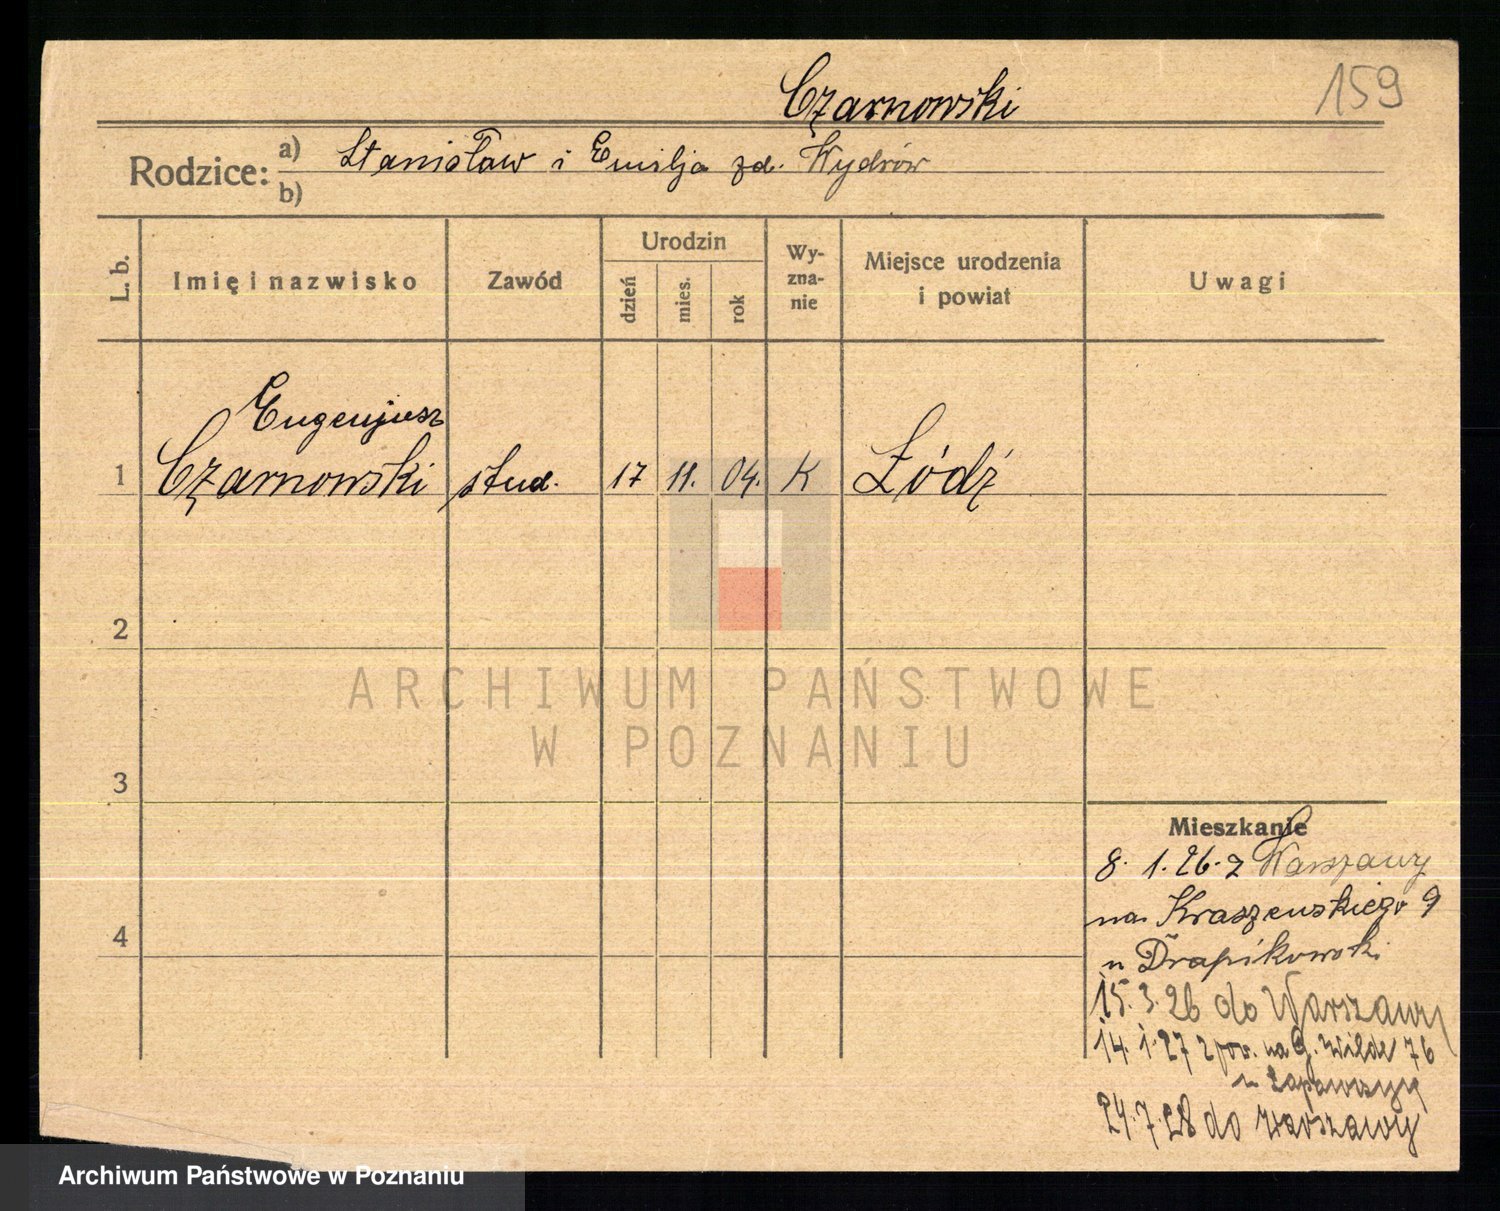 159
Czarnowski
Rodzice: a) Stanisław i Emilja zd. Wydrów
b)
L. b.
Imię i nazwisko
Zawód
Urodzin
dzień
mies.
rok
Wy-
zna-
nie
Miejsce urodzenia
i powiat
Uwagi
Eugenjusz
1 Czarnowski stud. 17 11. 04. K Łódź
2
3
4
ARCHIWUM PAŃSTWOWE
W POZNANIU
Mieszkanie
8. 1. 26. z Warszawy
na Kraszewskiego 9
u Drapikowski
15. 3. 26 do Warszawy
14. 1. 27 z pow. na G. Wilde 76
u
24.7.28 do Warszawy
Archiwum Państwowe w Poznaniu